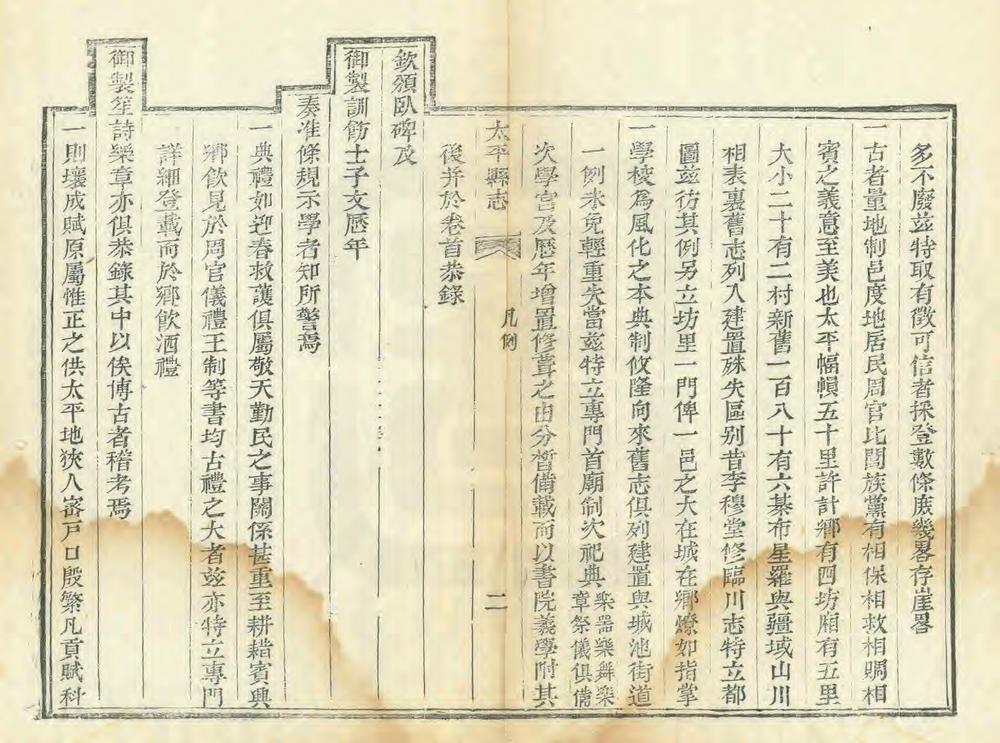 多不廢茲特取有徵可信者採登數條庶幾畧存崖畧
一古者量地制邑度地居民周官比閭族黨有相保相救相賙相
賓之義意至美也太平幅幀五十里許計鄉有四坊廂有五里
大小二十有二村新舊一百八十有六棊布星羅與疆域山川
相表裏舊志列入建置殊失區别昔李穆堂修臨川志特立都
圖茲仿其例另立坊里一門俾一邑之大在城在鄉燎如指掌
一學校爲風化之本典制攸隆向來舊志俱列建置與城池街道
一例未免輕重失當茲特立專門首廟制次祀典樂器樂舞樂章祭儀俱備
次學宫及歷年增置修葺之由分晳備載而以書院義學附其
後并於卷首恭錄
太平縣志
凡例
二
欽頒臥碑及
御製訓飭士子文歷年
奏准條規示學者知所警焉
一典禮如迎春救護俱屬敬天勤民之事關係甚重至耕耤賓興
鄉飲見於周官儀禮王制等書均古禮之大者茲亦特立專門
詳細登載而於鄉飲酒禮
御製笙詩樂章亦俱恭錄其中以俟博古者稽考焉
一則壤成賦原屬惟正之供太平地狹人宻戸口殷繁凡貢賦科